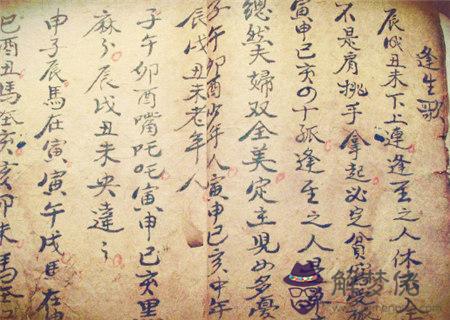 逢生歌
辰戌丑未下上連逢至之人休
不是肩挑手拿起必定貧
寅申巳亥四个孤逢至之人
總然夫婦双全美定主児女多憂
子午卯酉少年人寅申巳亥中年
辰戌丑未老年人
子午卯酉嘴吒吒寅申巳亥黑
麻分辰戌丑未央違々
申子辰馬在寅寅午戌馬在
巳酉丑馬亥亥卯未馬
解梦佬